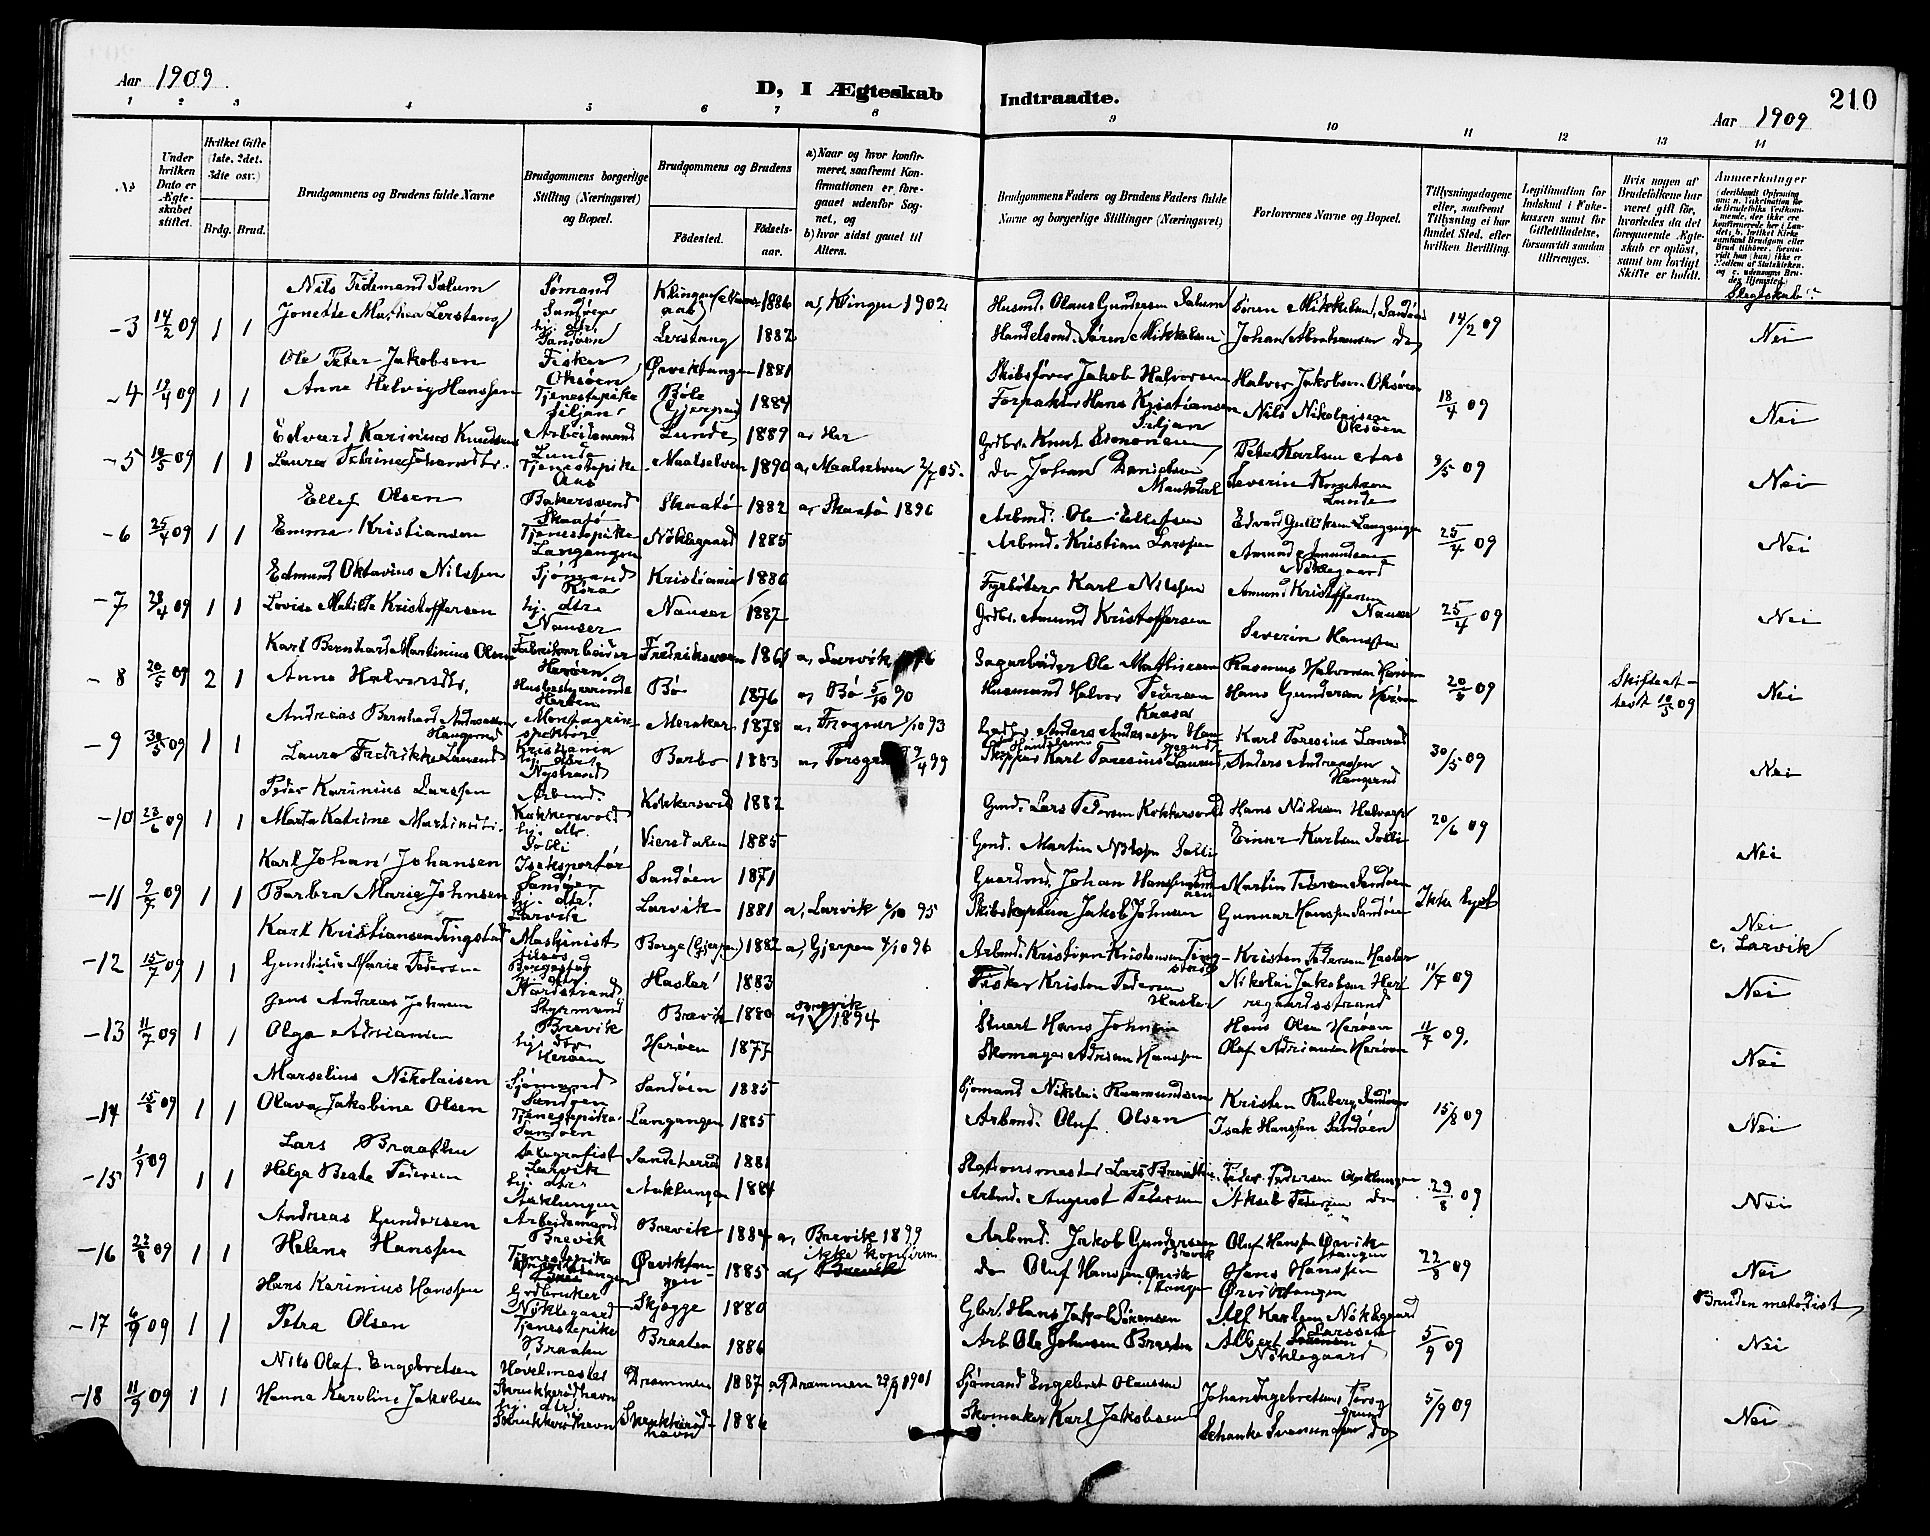 Aar 1909. D, I Ægteskab Indtraadte. 210
Aar 1909
1 2 3 4 5 6 7 8 9 10 11 12 13 14
No.
Under hvilken Dato er Ægteskabet stiftet.
Hvilket Gifte (1ste, 2det, 3die osv.)
Brdg. Brud.
Brudgommens og Brudens fulde Navne
Brudgommens borgerlige Stilling (Næringsvei) og Bopæl.
Brudgommens og Brudens
Fødested. Fødselsaar.
a) Naar og hvor konfirmeret, saafremt Konfirmationen er foregaaet udenfor Sognet, og
b) hvor sidst gaaet til Alters.
Brudgommens Faders og Brudens Faders fulde Navne og borgerlige Stillinger (Næringsvei)
Forlovernes Navne og Bopæl.
Tillysningsdagene eller, saafremt Tillysning ei har fundet Sted, efter hvilken Bevilling.
Legitimation for Indskud i Enkekassen samt for Giftetilladelse, forsaavidt saadan tiltrænges.
Hvis nogen af Brudefolkene har været gift før, hvorledes da det foregaaende Ægteskab er opløst, samt om lovligt Skifte er holdt.
Anmærkninger
Slegtskab
Nils Tidemand Salum Sømand 1886 a, Klingen 1902 Husmd. Olaus Gundersen Salum Søren Mikkelsen, Sandøen
3 14/2 09 1 1 Jonette Mathea Lerstang hj. dtr. Sandøen Lerstang 1882 Handelsmd. Søren Mikkelsen Johan Abrahamsen do 14/2 09 Nei
Ole Peter Jakobsen Fisker Oksøen Ørviktangen 1881 Skibsfører Jakob Halvorsen Halvor Jakobsen Oksøen
4 18/4 09 1 1 Anne Helvig Hanssen Tjenestepike Siljan Bøle (Gjerpen) 1884 Forpakter Hans Kristiansen Siljan Nils Nikolaisen Oksøen 18/4 09 Nei
Edvard Karinius Knudsen Arbeidsmand Lunde Lunde 1889 a, Her Knut Simonsen Peter Karlsen Aas
5 1 1 Laura Petrine Johansdtr. Tjenestepike Aas Maalselven 1890 a, Maalselven 2/7 05. do Johan Danielsen Severin Knutsen Lunde 9/5 09 Nei
Ellef Olsen Bakersvend Skaatø Skaatø 1882 a, Skaatø 1896 Arbmd. Ole Ellefsen Edvard Gulliksen Langangen
6 25/4 09 1 1 Emma Kristiansen Tjenestepike Langangen Nøklegaard 1885 Arbmd. Kristian Larssen Amund Amundsen Nøklegaard 25/4 09 Nei
Edmund Oktavius Nilssen Sjømand Kristiania 1886 Fyrbøter Karl Nilssen Amund Kristoffersen Nauser
7 28/4 09 1 1 Lovise Matilde Kristoffersen hj. dtr. Nauser Nauser 1887 Grdbr. Amund Kristoffersen Severin Hanssen 25/4 09 Nei
Karl Bernhard Martinius Olsen Fabrikarbeider Herøen. a, Larvik Sagarbeider Ole Mathisen Rasmus Halvorsen Herøen
8 20/5 09 2 1 Anne Halvorsdtr. Husbestyrerinde Herøen Bø 1876 a, Bø 5/10 90 Husmand Halvor Pedersen Hans Gundersen Herøen 20/5 09 Skifteattest 18/5 09 Nei
Andreas Bernhard Andreassen Haugerud Kristiania Meraker 1878 a, Frogner 1/10 93 Karl Taresius Laurend
9 30/5 09 1 1 Laura Fredrikke Laurend hj. dtr. Nystrand Barbo 1883 Skipper Karl Taresius Laurend Anders Andreassen Haugerud 30/5 09 Nei
Peder Karinius Larssen Arbmd. Kokkersvold Kokkersvold 1882 Gmd. Lars Pedersen Kokkersvold Hans Nilssen
10 23/6 09 1 1 Marta Katrine Martinsdtr. hj. dtr. Solli Viersdalen 1885 Gmd. Martin Nilssen Solli Einar Karlsen Solli 20/6 09 Nei
Karl Johan Johansen Iseksportør Sandøen Sandøen 1871 Gaardmd. Johan Hanssen Martin Pedersen Sandøen
11 9/7 09 1 1 Barbra Marie Johnsen hj. dtr. Larvik Larvik 1881 a, Larvik 6/10 95 Skibskaptein Jakob Johnsen Gunnar Hanssen Sandøen Ikke lyst Nei c, Larvik
Karl Kristiansen Tingstad Maskinist Borge (Gjerpen) 1882 a, Gjerpen 4/10 96 Arbmd. Kristian Kristensen Tingstad Kristen Pedersen Hasler
12 15/7 09 1 1 Marie Pedersen hj. dtr. Nordstrand Hasler 1883 Fisker Kristen Pedersen Hasler Nikolai Jakobsen Herregaardsstrand 11/7 09 Nei
Jens Andreas Johnsen Styrmand Brevik Brevik 1880 a, Brevik 1894 Stuert Hans Johnsen Hans Olsen Herøen
13 11/7 09 1 1 Olga Adriansen hj. dtr. Herøen Herøen 1877 Skomager Adrian Hanssen Olaf Adriansen Herøen 11/7 09. Nei
Marselius Nikolaisen Sjømand Sandøen Sandøen 1885 Sjømand Nikolai Rasmussen Kristen Ruberg Sandøen
14 15/8 09 1 1 Olava Jakobine Olsen Tjenestepike Sandøen Langangen 1885 Arbmd. Oluf Olsen Isak Hanssen Sandøen 15/8 09 Nei
Lars Braathen Telegrafist Larvik Sandeherred 1881 Stationsmester Lars Peder Pedersen Aaklungen
15 1/9 09 1 1 Helga Beate Pedersen hj. dtr. Aaklungen Aaklungen 1884 Arbmd. August Pedersen Aksel Pedersen do 29/8 09 Nei
Andreas Gundersen Arbeidsmand Brevik Brevik 1884 a, Brevik 1899 Arbmd. Jakob Gundersen Brevik Oluf Hanssen Ørviktangen
16 22/8 09 1 1 Helene Hanssen Tjenestepike Ørviktangen 1885 a, ikke konfirm. Brevik do Oluf Hanssen Ørviktangen Hans Hanssen Ørviktangen 22/8 09 Nei
Hans Karinius Hanssen Grdbruker Nøklegaard Skjøgge 1880 Gbr. Hans Jakob Sørensen Alf Karlsen Nøklegaard Bruden metodist
17 6/9 09 1 1 Petra Olsen Tjenestepike Braaten Braaten 1886 Arb. Ole Johnsen Braaten Albert Larssen Nøklegaard 5/9 09 Nei
Nils Olaf Engebretsen Hovelmester Skrukkerødhavn Drammen 1887 a, Drammen 29/9 1901 Sjømand Engebret Olaussen Johan Ingebretsen
18 11/9 09 1 1 Hanna Karoline Jakobsen hj. dtr. Skrukkerødhavn Skrukkerødhavn 1886 Skomaker Karl Jakobsen do 5/9 09 Nei